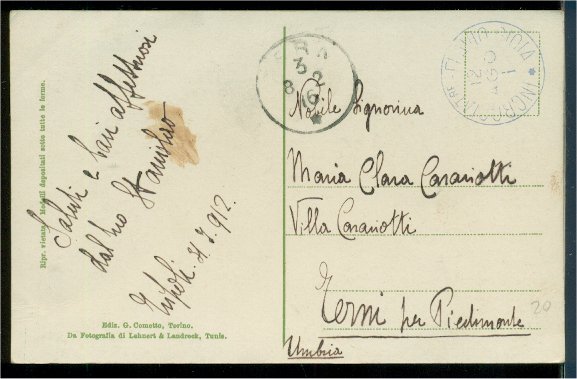 Ripr. vietata. Modelli depositati sotto tutte le forme.
Saluti e baci affettuosi
dal tuo Stanislao
31.7.912.
Ediz. G. Cometto, Torino.
Da Fotografia di Lehnert & Landrock, Tunis.
3
8 2
16
12
AGO
1
Nobile Signorina
Maria Clara Caraciotti
Villa Caraciotti
Terni per Piedimonte
Umbria
20